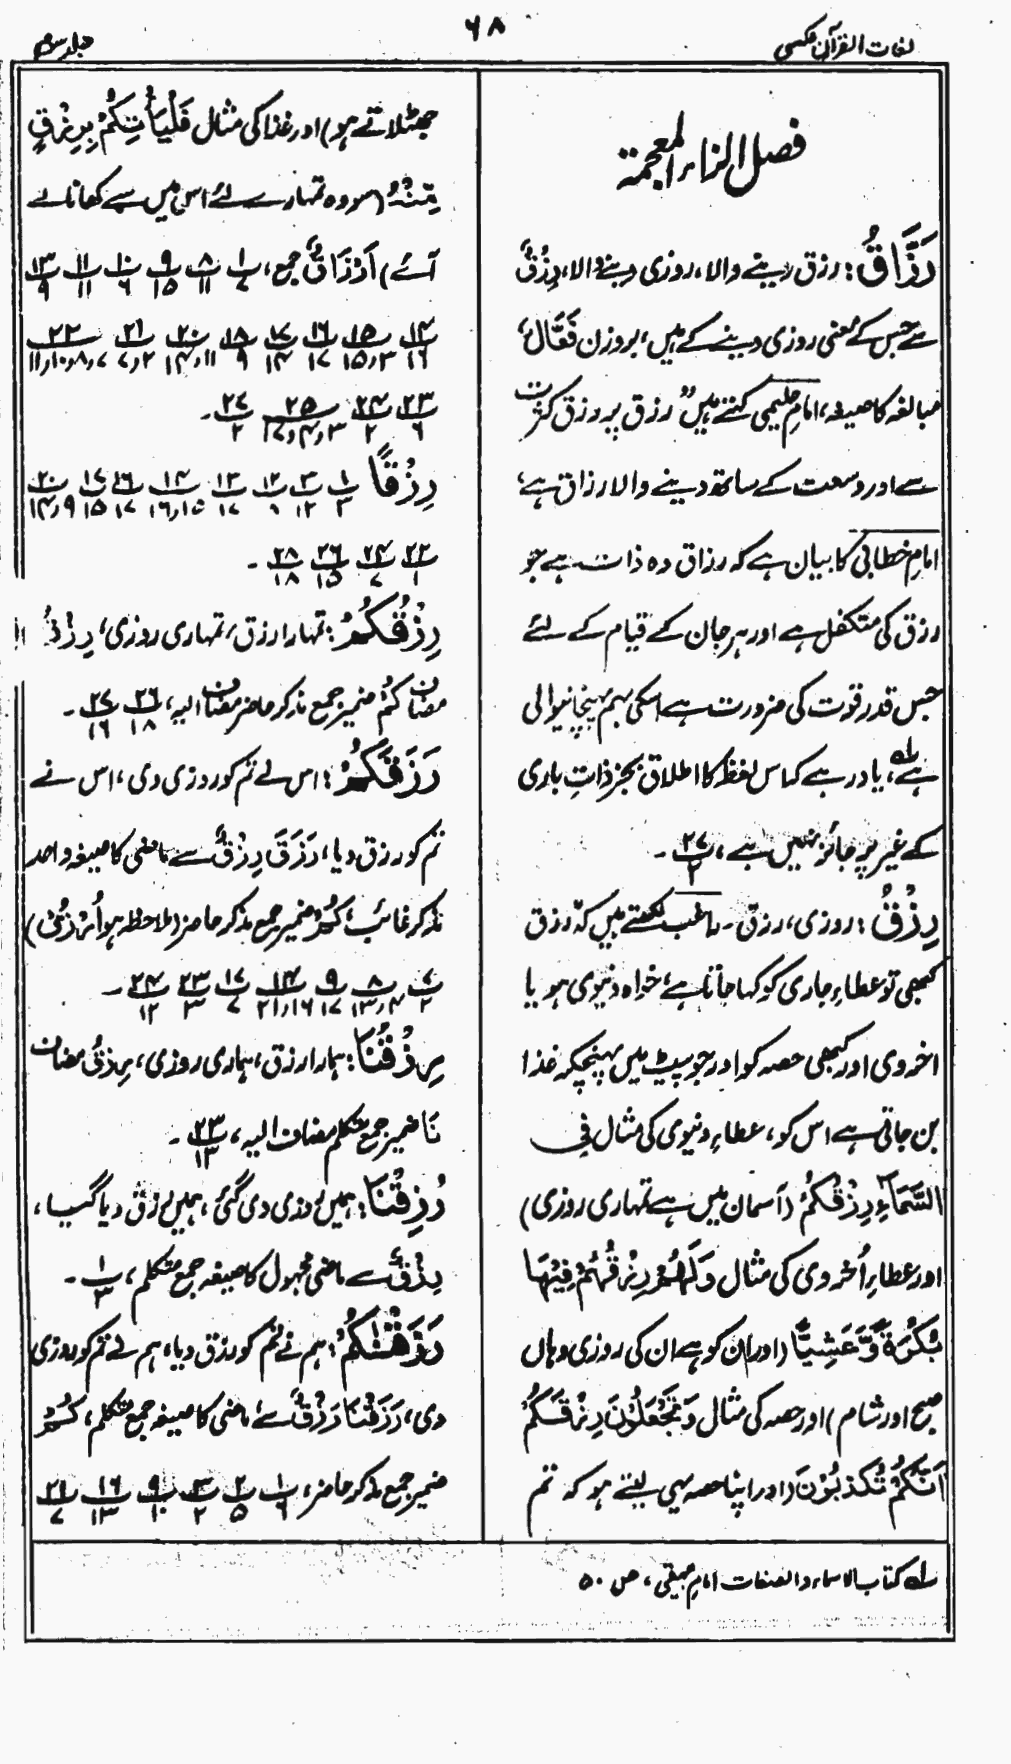 لغات القرآن عکسی
۶۸
جلد سوم
فصل الزاء المعجمۃ
رَزَّاقُ: رزق دینے والا، روزی دینے والا، رِزْقٌ
سے جس کے معنی روزی دینے کے ہیں، بروزن فَعَّالٌ،
مبالغہ کا صیغہ، امام حلیمی کہتے ہیں "رزق پر رزق کثرت
سے اور وسعت کے ساتھ دینے والا رزاق ہے،
امام خطابی کا بیان ہے کہ رزاق وہ ذات ہے جو
رزق کی متکفل ہے اور ہر جان کے قیام کے لئے
جس قدر قوت کی ضرورت ہے اسکی بہم پہنچانیوالی
ہے لہ، یاد رہے کہ اس لفظ کا اطلاق بجز ذاتِ باری
کے غیر پر جائز نہیں ہے، پ ۲۷/۲ ۔
رِزْقُ: روزی، رزق۔ راغب لکھتے ہیں کہ رزق
کبھی تو عطاءِ جاری کو کہا جاتا ہے خواہ دنیوی ہو یا
اخروی اور کبھی حصہ کو اور جو پیٹ میں پہنچکر غذا
بن جاتی ہے اس کو، عطاءِ دنیوی کی مثال فِی
السَّمَاءِ رِزْقُکُمْ (آسمان میں ہے تمہاری روزی)
اور عطاءِ اُخروی کی مثال وَلَهُمْ رِزْقُهُمْ فِيْهَا
بُكْرَةً وَّعَشِيًّا (اور ان کو ہے ان کی روزی وہاں
صبح اور شام) اور حصہ کی مثال وَتَجْعَلُوْنَ رِزْقَكُمْ
اَنَّكُمْ تُكَذِّبُوْنَ (اور اپنا حصہ یہی لیتے ہو کہ تم
جھٹلاتے ہو) اور غذا کی مثال فَلْيَأْتِكُمْ بِرِزْقٍ
مِّنْهُ (سو وہ تمہارے لئے اس میں سے کھانا لے
آئے) اَرْزَاقٌ جمع، ۱/۷ ۸/۱۱ ۹/۱۵ ۱۰/۶ ۱۱/۱۱ ۱۳/۹
۱۴/۱۶ ۱۵/۳،۱۵ ۱۶/۱۷ ۱۷/۱۴ ۱۸/۹ ۲۰/۱۱،۱۴ ۲۱/۲،۷ ۲۲/۷،۸،۱۰،۱۱
۲۳/۶ ۲۴/۲ ۲۵/۳،۴،۱۷ ۲۷/۲ ۔
رِزْقًا ۱/۳ ۳/۱۲ ۱۲/۸ ۱۳/۱۷ ۱۴/۱۵،۱۶ ۱۶/۱۷ ۱۷/۱۵ ۲۰/۹،۱۴
۲۲/۱ ۲۴/۷ ۲۶/۱۵ ۲۸/۱۸ ۔
رِزْقُكُمْ: تمہارا رزق، تمہاری روزی، رِزْقُ
مضاف كُمْ ضمیر جمع مذکر حاضر مضاف الیہ، ۲۶/۱۸ ۲۷/۱۶ ۔
رَزَقَكُمْ: اس نے تم کو روزی دی، اس نے
تم کو رزق دیا، رَزَقَ رِزْقٌ سے ماضی کا صیغہ واحد
مذکر غائب، كُمْ ضمیر جمع مذکر حاضر (ملاحظہ ہو اُرْزُقْنِیْ)
۷/۲ ۸/۴،۱۳ ۹/۱۷ ۱۴/۱۶،۲۱ ۱۷/۷ ۲۳/۳ ۲۴/۱۲ ۔
رِزْقُنَا: ہمارا رزق، ہماری روزی، رِزْقُ مضاف
نَا ضمیر جمع متکلم مضاف الیہ، ۲۳/۱۳ ۔
رُزِقْنَا: ہمیں روزی دی گئی، ہمیں رزق دیا گیا،
رِزْقٌ سے ماضی مجہول کا صیغہ جمع متکلم، ۱/۳ ۔
رَزَقْنٰكُمْ: ہم نے تم کو رزق دیا، ہم نے تم کو روزی
دی، رَزَقْنَا رِزْقٌ سے ماضی کا صیغہ جمع متکلم، كُمْ
ضمیر جمع مذکر حاضر، ۱/۶ ۲/۵ ۳/۲ ۹/۱۰ ۱۶/۱۳ ۲۱/۷
لہ کتاب الاسماء والصفات امام بیہقی، ص ۵۰